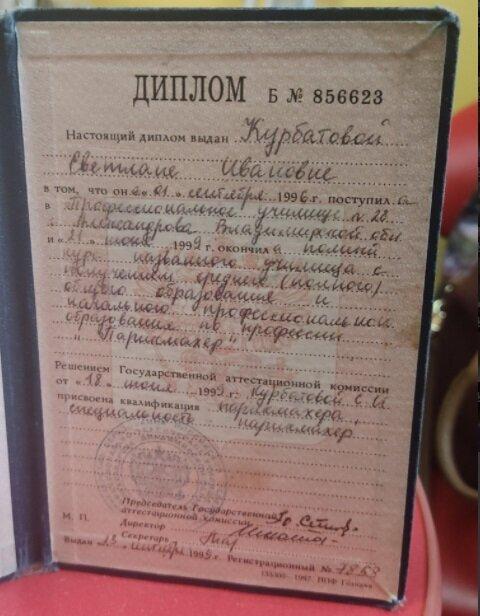 ДИПЛОМ Б № 856623
Настоящий диплом выдан Курбатовой
Светлане Ивановне
в том, что она "01" сентября 1996 г. поступила
в Профессиональное училище № 28
г. Александрова Владимирской обл
и "21" июня 1999 г. окончила полный
курс названного училища с
получением среднего (полного)
общего образования и
начального профессионального
образования по профессии
"Парикмахер"
Решением Государственной аттестационной комиссии
от "18" июня 1999 г. Курбатовой С. И.
присвоена квалификация парикмахера,
специальность парикмахер
Председатель Государственной
аттестационной комиссии
М. П. Директор
Секретарь
Выдан 1999 г. Регистрационный № 7863
1997